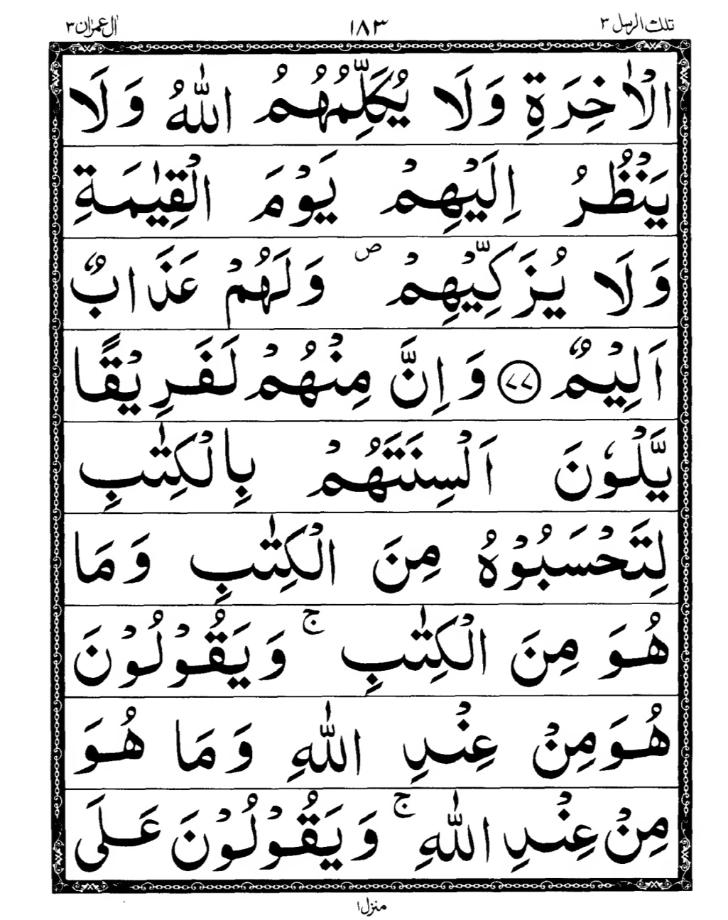 تلك الرسل ٣ ١٨٣ اٰل عمرٰن ٣
الْاٰخِرَةِ وَلَا يُكَلِّمُهُمُ اللّٰهُ وَلَا
يَنْظُرُ اِلَيْهِمْ يَوْمَ الْقِيٰمَةِ
وَلَا يُزَكِّيْهِمْ ۪ وَلَهُمْ عَذَابٌ
اَلِيْمٌ ﴿۷۷﴾ وَاِنَّ مِنْهُمْ لَفَرِيْقًا
يَّلْوٗنَ اَلْسِنَتَهُمْ بِالْكِتٰبِ
لِتَحْسَبُوْهُ مِنَ الْكِتٰبِ وَمَا
هُوَ مِنَ الْكِتٰبِ ۚ وَيَقُوْلُوْنَ
هُوَ مِنْ عِنْدِ اللّٰهِ وَمَا هُوَ
مِنْ عِنْدِ اللّٰهِ ۚ وَيَقُوْلُوْنَ عَلَى
منزل ۱